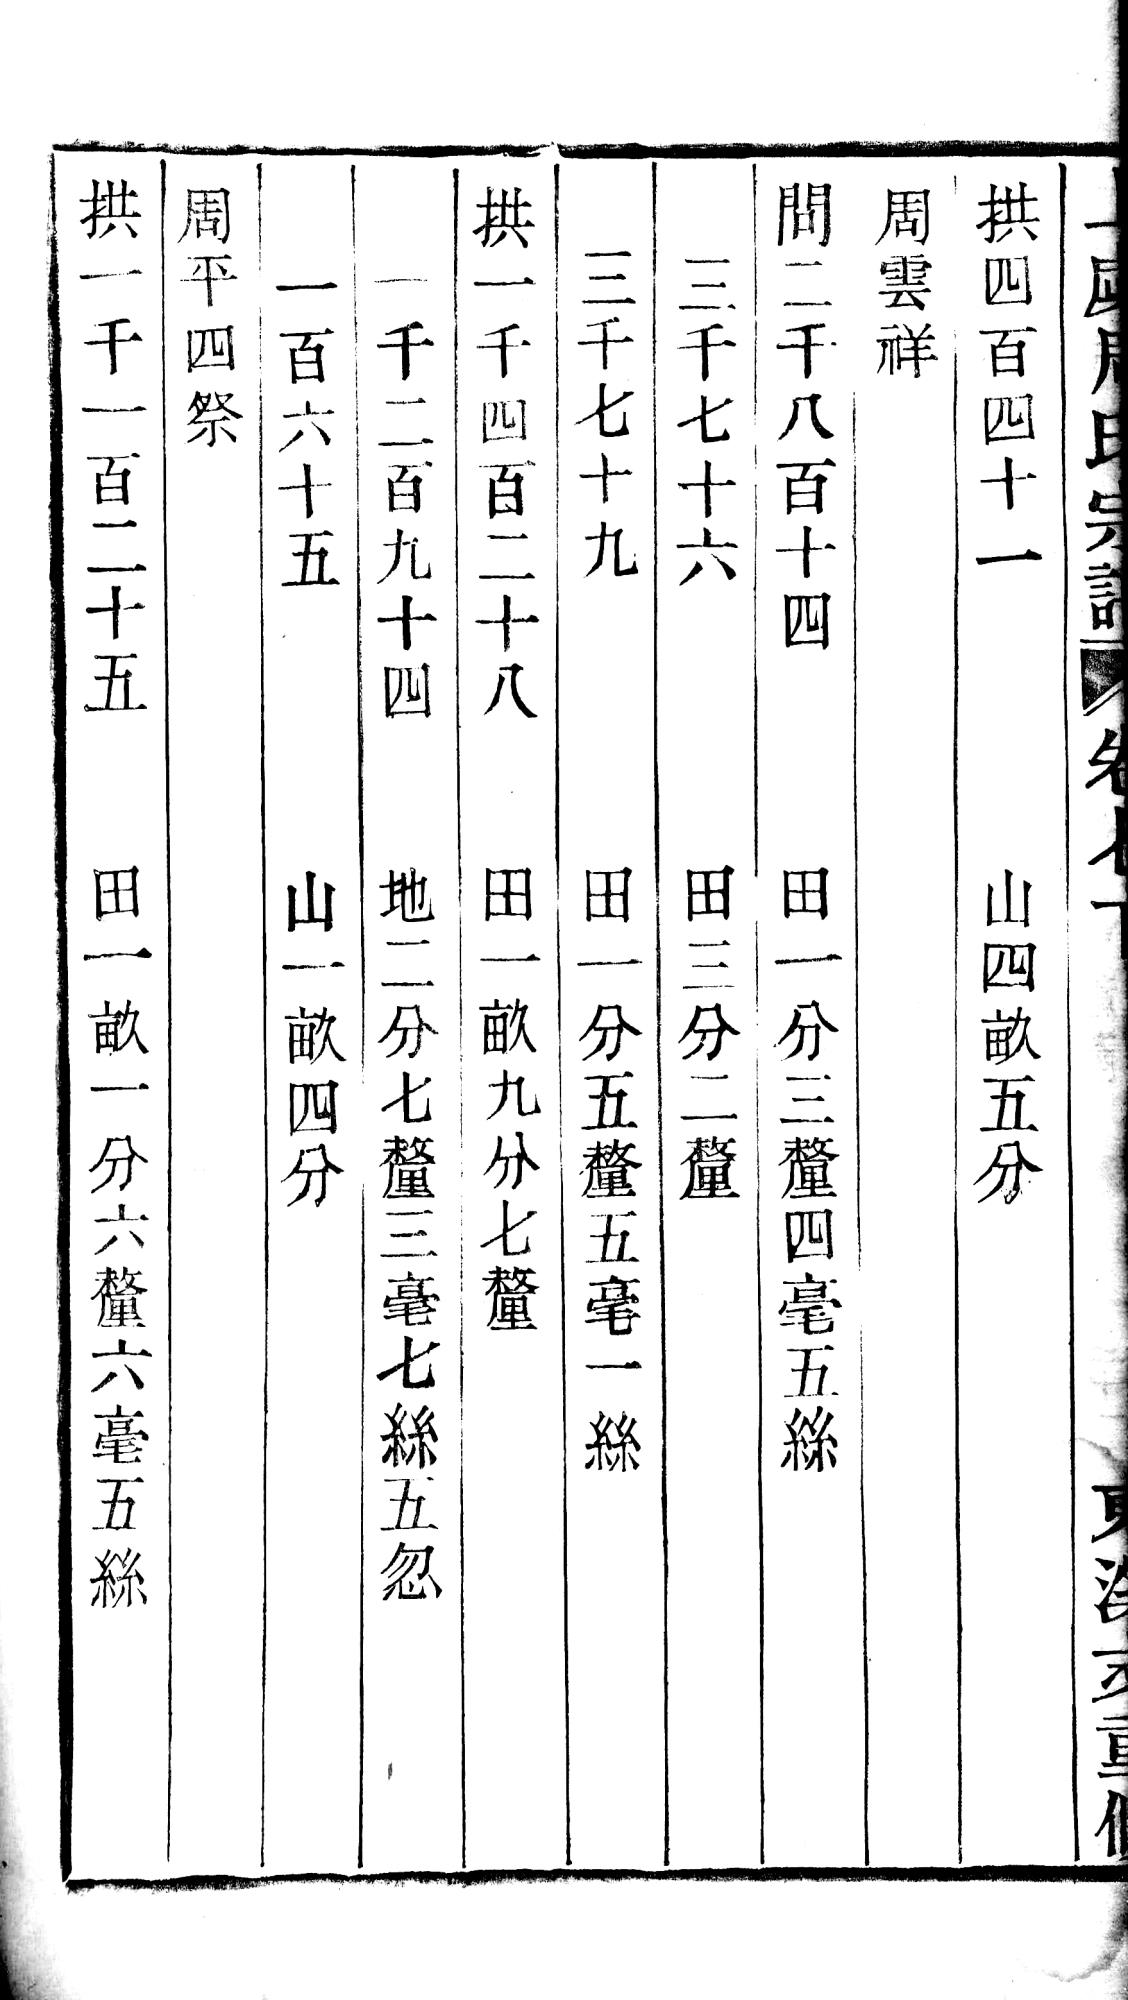 周氏宗譜 卷七下
拱四百四十一 山四畝五分
周雲祥
問二千八百十四 田一分三釐四毫五絲
三千七十六 田三分二釐
三千七十九 田一分五釐五毫一絲
拱一千四百二十八 田一畝九分七釐
一千二百九十四 地二分七釐三毫七絲五忽
一百六十五 山一畝四分
周平四祭
拱一千一百二十五 田一畝一分六釐六毫五絲